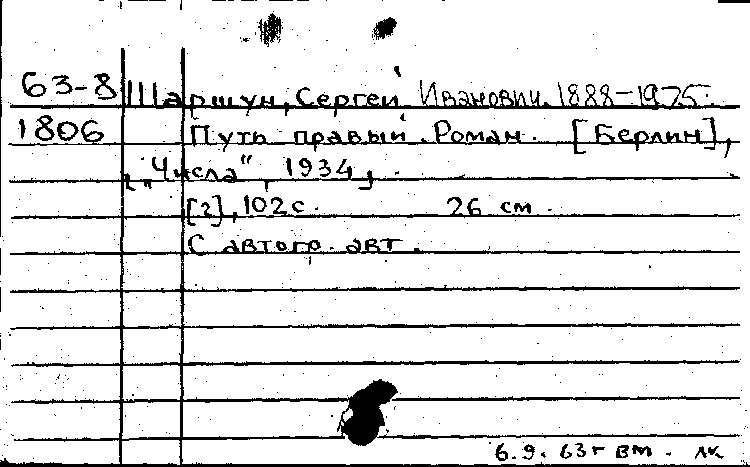 63-8 Шаршун, Сергей Иванович. 1888-1975.
1806 Путь правый. Роман. [Берлин],
["Числа", 1934].
[2], 102 с. 26 см.
С автогр. авт.
6.9.63г вм. лк